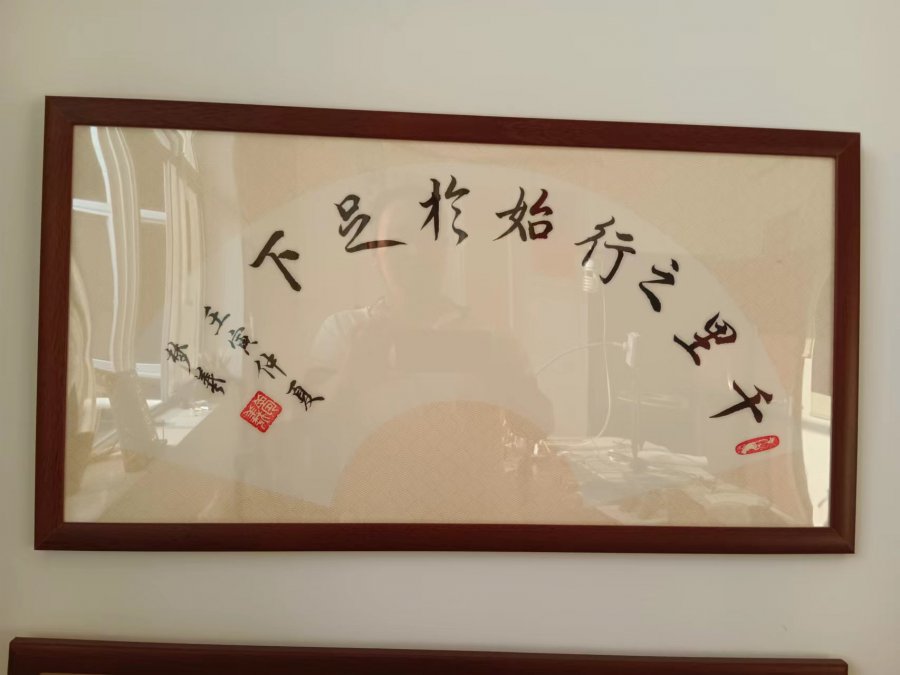 千里之行始於足下
壬寅仲夏
梦